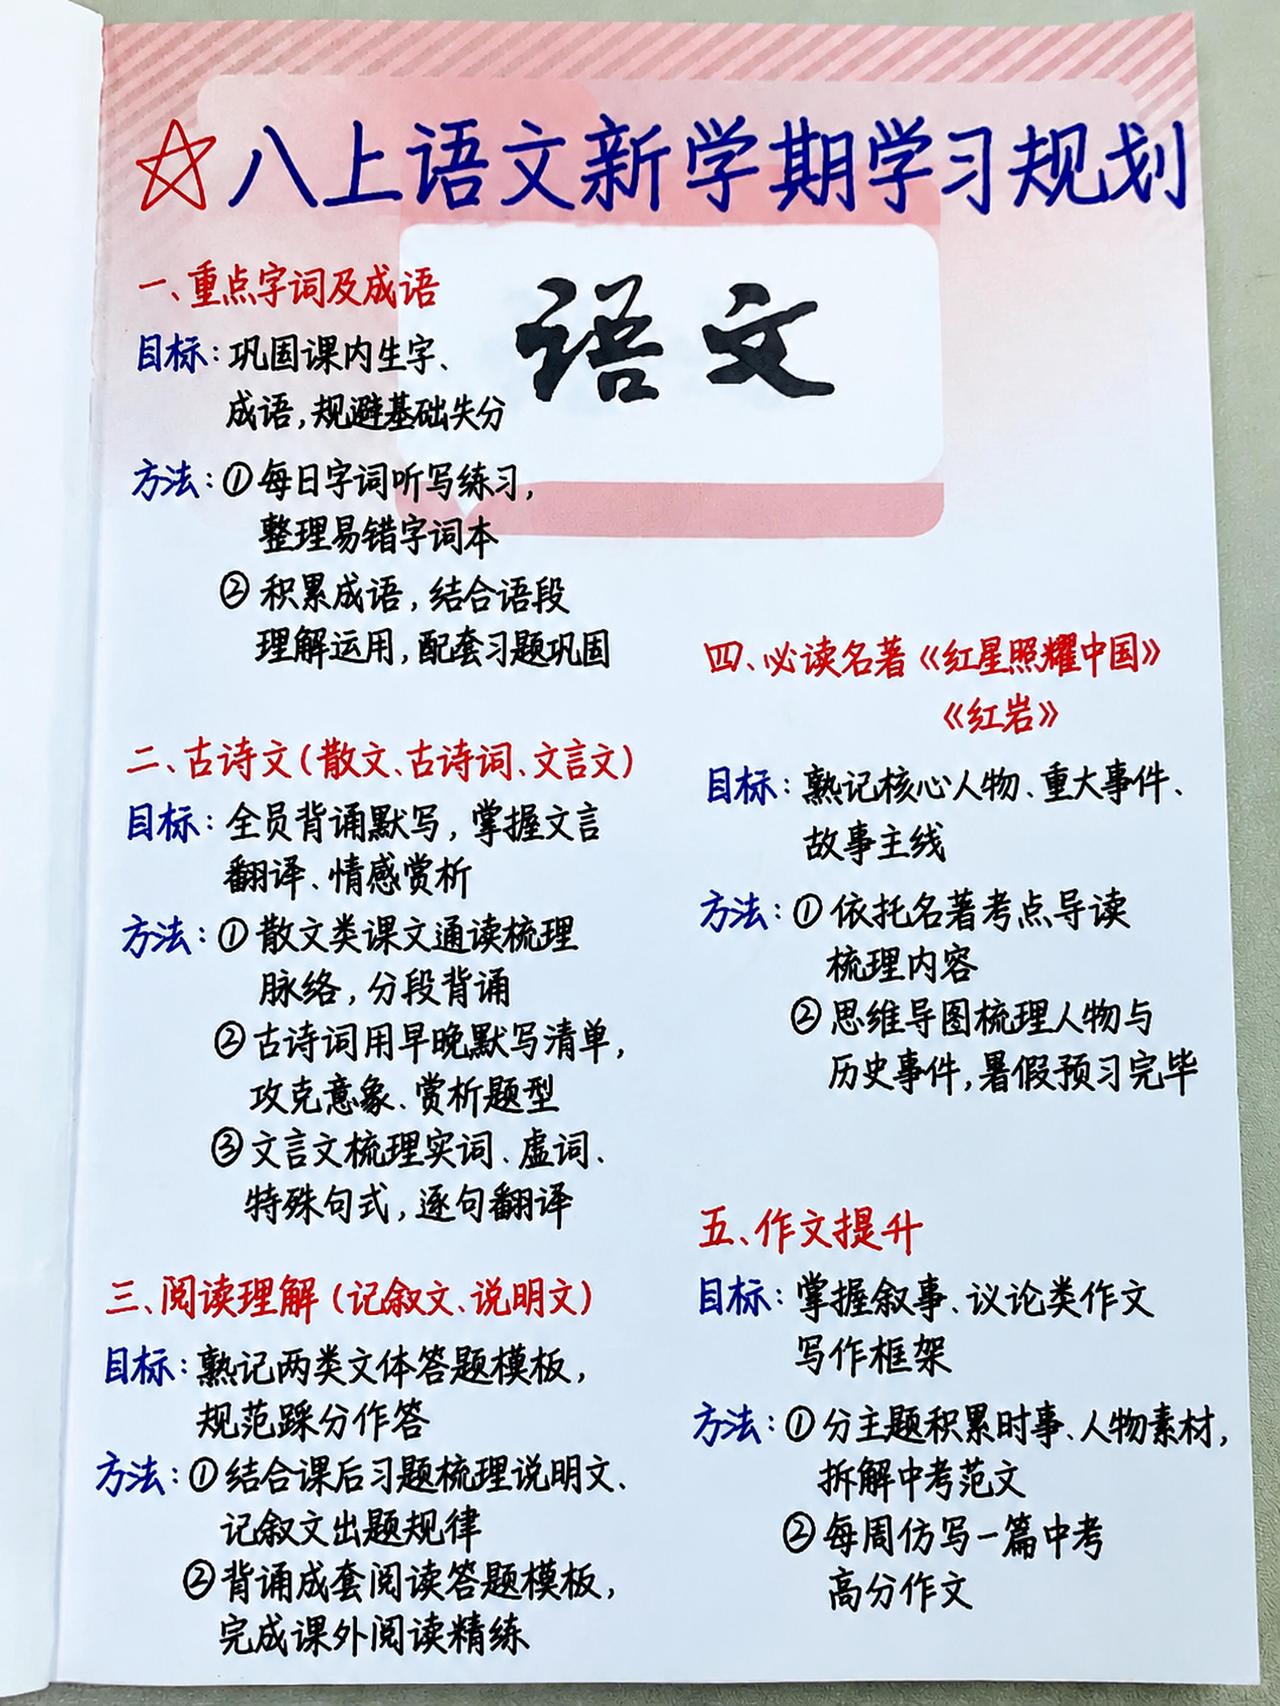 ☆八上语文新学期学习规划
语文
一、重点字词及成语
目标：巩固课内生字、
成语，规避基础失分
方法：①每日字词听写练习，
整理易错字词本
②积累成语，结合语段
理解运用，配套习题巩固
二、古诗文（散文、古诗词、文言文）
目标：全员背诵默写，掌握文言
翻译、情感赏析
方法：①散文类课文通读梳理
脉络，分段背诵
②古诗词用早晚默写清单，
攻克意象、赏析题型
③文言文梳理实词、虚词、
特殊句式，逐句翻译
三、阅读理解（记叙文、说明文）
目标：熟记两类文体答题模板，
规范踩分作答
方法：①结合课后习题梳理说明文、
记叙文出题规律
②背诵成套阅读答题模板，
完成课外阅读精练
四、必读名著《红星照耀中国》
《红岩》
目标：熟记核心人物、重大事件、
故事主线
方法：①依托名著考点导读
梳理内容
②思维导图梳理人物与
历史事件，暑假预习完毕
五、作文提升
目标：掌握叙事、议论类作文
写作框架
方法：①分主题积累时事、人物素材，
拆解中考范文
②每周仿写一篇中考
高分作文